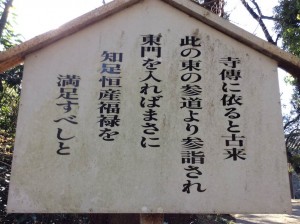 寺傳に依ると古来
此の東の参道より参詣され
東門を入ればまさに
知足恒産福禄を
満足すべしと